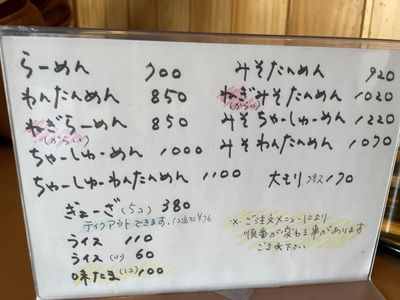 らーめん 700
わんたんめん 850
ねぎらーめん 850
(からい)
ちゃーしゅーめん 1000
ちゃーしゅーわんたんめん 1100
ぎょーざ(5コ) 380
テイクアウトできます。
ライス 110
ライス(小) 60
味たま(1コ) 100
みそたんめん 920
ねぎみそたんめん 1020
(からい)
みそちゃーしゅーめん 1220
みそわんたんめん 1070
大もりプラス170
※ご注文メニューにより
順番が変わる事があります
ご了承下さい